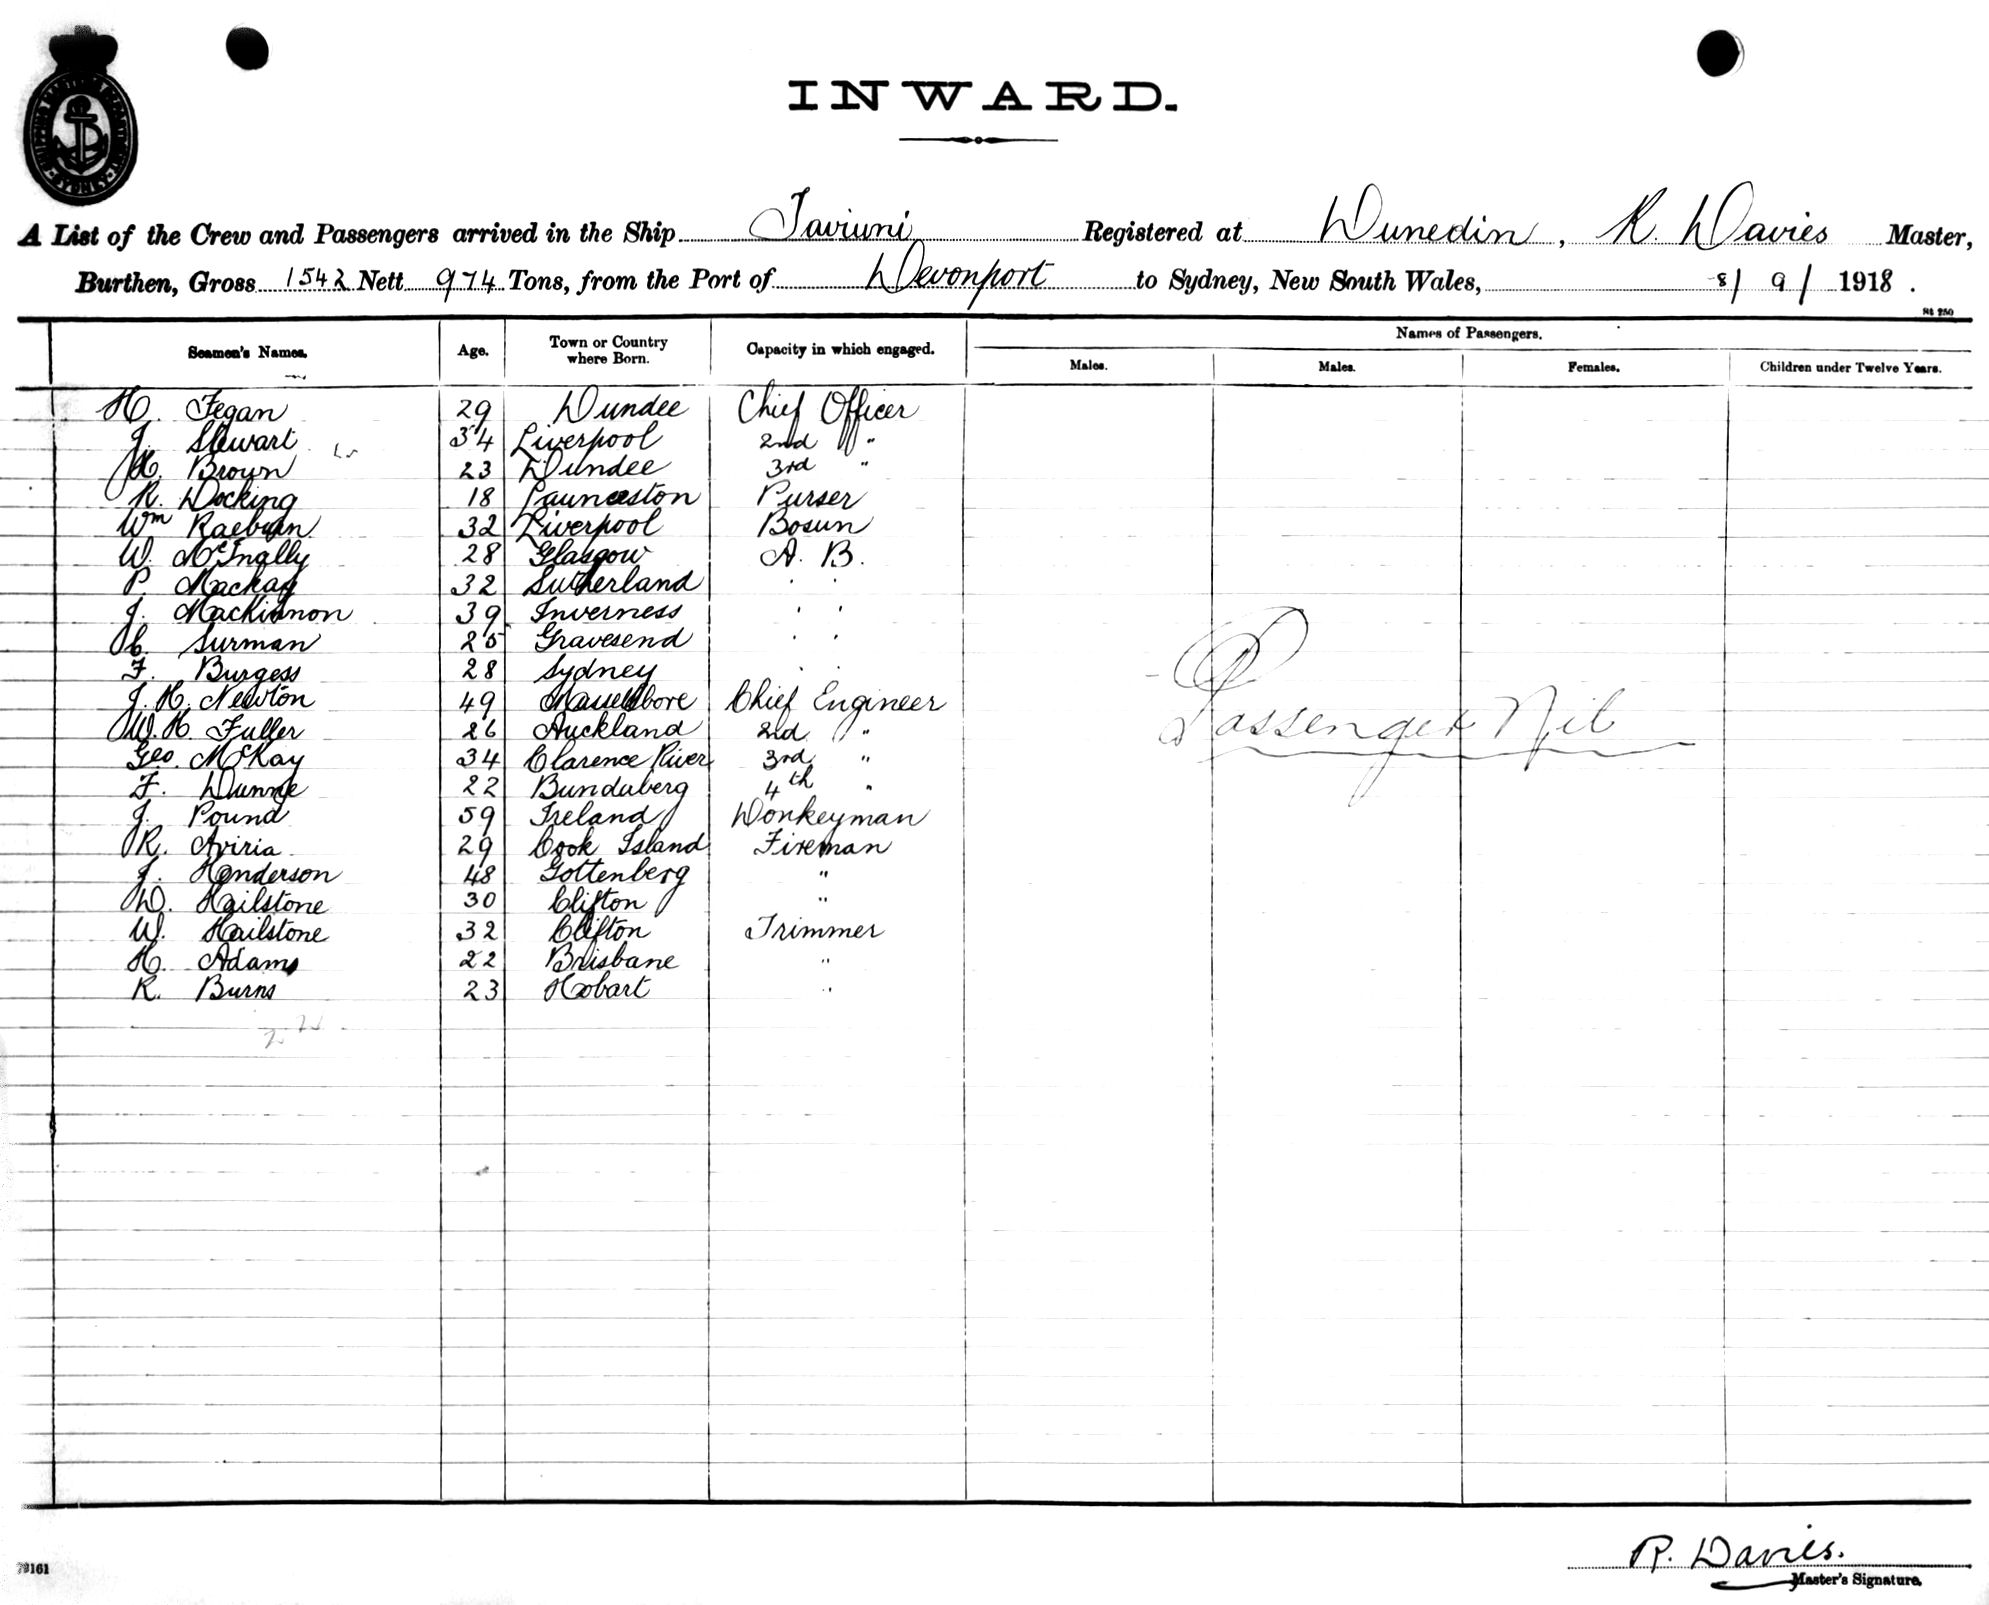 INWARD.
A List of the Crew and Passengers arrived in the Ship Taviuni Registered at Dunedin, R. Davies Master,
Burthen, Gross 1542 Nett 974 Tons, from the Port of Devonport to Sydney, New South Wales, 8/9/1918.
St 250
Seamen's Names. Age. Town or Country where Born. Capacity in which engaged. Names of Passengers.
Males. Males. Females. Children under Twelve Years.
H. Fegan 29 Dundee Chief Officer
J. Stewart 34 Liverpool 2nd "
H. Brown 23 Dundee 3rd "
R. Docking 18 Launceston Purser
Wm Raeburn 32 Liverpool Bosun
W. McInally 28 Glasgow A. B.
P. Mackay 32 Sutherland " "
J. Mackinnon 39 Inverness " "
C. Surman 25 Gravesend " "
F. Burgess 28 Sydney " "
J. H. Newton 49 Chief Engineer
W. H. Fuller 26 Auckland 2nd "
Geo. McKay 34 Clarence River 3rd "
F. Dunne 22 Bundaberg 4th "
J. Pound 59 Ireland Donkeyman
R. Aviria 29 Cook Island Fireman
J. Henderson 48 Gottenberg "
D. Hailstone 30 Clifton "
W. Hailstone 32 Clifton Trimmer
H. Adams 22 Brisbane "
R. Burns 23 Hobart "
Passengers Nil
R. Davies.
Master's Signature.
SYDNEY